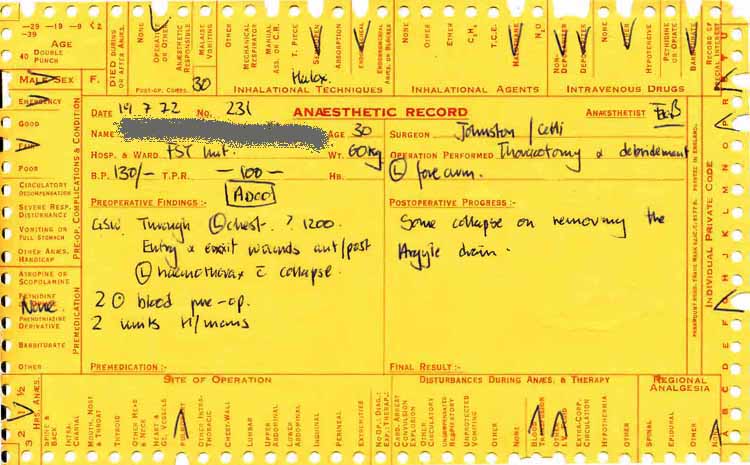 -29 -19 -9 <2
-39
AGE
40 DOUBLE
PUNCH
DIED DURING
OR AFTER ANÆS.
NONE
OPERATIVE
OR OTHER
ANÆSTHETIC
RESPONSIBLE
MALAISE
VOMITING
OTHER
MECHANICAL
RESPIRATOR
MANUAL
ASS. OR C.R.
T. PIECE
ABSORPTION
NONE
OTHER
ETHER
C₃H₆
T.C.E.
N₂O
NONE
OTHER
HYPOTENSIVE
PETHIDINE
OR OPIATE
RECORD OF
SPECIAL INTEREST
MALE SEX F.
POST-OP. COMPS.
30
INHALATIONAL TECHNIQUES
Halox.
INHALATIONAL AGENTS
INTRAVENOUS DRUGS
EMERGENCY
GOOD
FAIR
POOR
CIRCULATORY
DECOMPENSATION
SEVERE RESP.
DISTURBANCE
VOMITING OR
FULL STOMACH
OTHER ANÆS.
HANDICAP
PRE-OP. COMPLICATIONS & CONDITION
ATROPINE OR
SCOPOLAMINE
PETHIDINE
None
PHENOTHIAZINE
DERIVATIVE
BARBITURATE
OTHER
PREMEDICATION
DATE 19 7 72 NO. 231 ANÆSTHETIC RECORD ANÆSTHETIST
NAME AGE 30 SURGEON Johnston /
HOSP. & WARD FST Unit. WT. 60kg OPERATION PERFORMED Thoracotomy & debridement
B.P. 130/- T.P.R. - 100 - HB. (L) forearm.
PREOPERATIVE FINDINGS:- POSTOPERATIVE PROGRESS:-
GSW Through (L) chest. ? 1200.
Entry & exit wounds ant/post
(L) haemothorax c̄ collapse.
2 blood pre-op.
2 units
Some collapse on removing the
Argyle drain.
PREMEDICATION:- FINAL RESULT:-
PRINTED IN ENGLAND.
INDIVIDUAL PRIVATE CODE
3 2 1 ½
HRS. ANÆS.
SITE OF OPERATION
SPINE &
BACK
INTRA-
CRANIAL
MOUTH, NOSE
& THROAT
THYROID
OTHER HEAD
& NECK
HEART &
GT. VESSELS
OTHER INTRA-
THORACIC
CHEST-WALL
LUMBAR
UPPER
ABDOMINAL
LOWER
ABDOMINAL
INGUINAL
PERINEAL
EXTREMITIES
DISTURBANCES DURING ANÆS. & THERAPY
NO OP.: DIAG.:
EXT. THERAP.
CARD. ARREST
CONVULSION
EXPLOSION
OTHER
CIRCULATORY
UNSUPPRESSED
RESPIRATORY
UNEXPECTED
VOMITING
OTHER
NONE
BLOOD
TRANSFUSION
OTHER
I.V. FLUID
EXTRA-CORP.
CIRCULATION
HYPOTHERMIA
OTHER
REGIONAL
ANALGESIA
SPINAL
EPIDURAL
OTHER